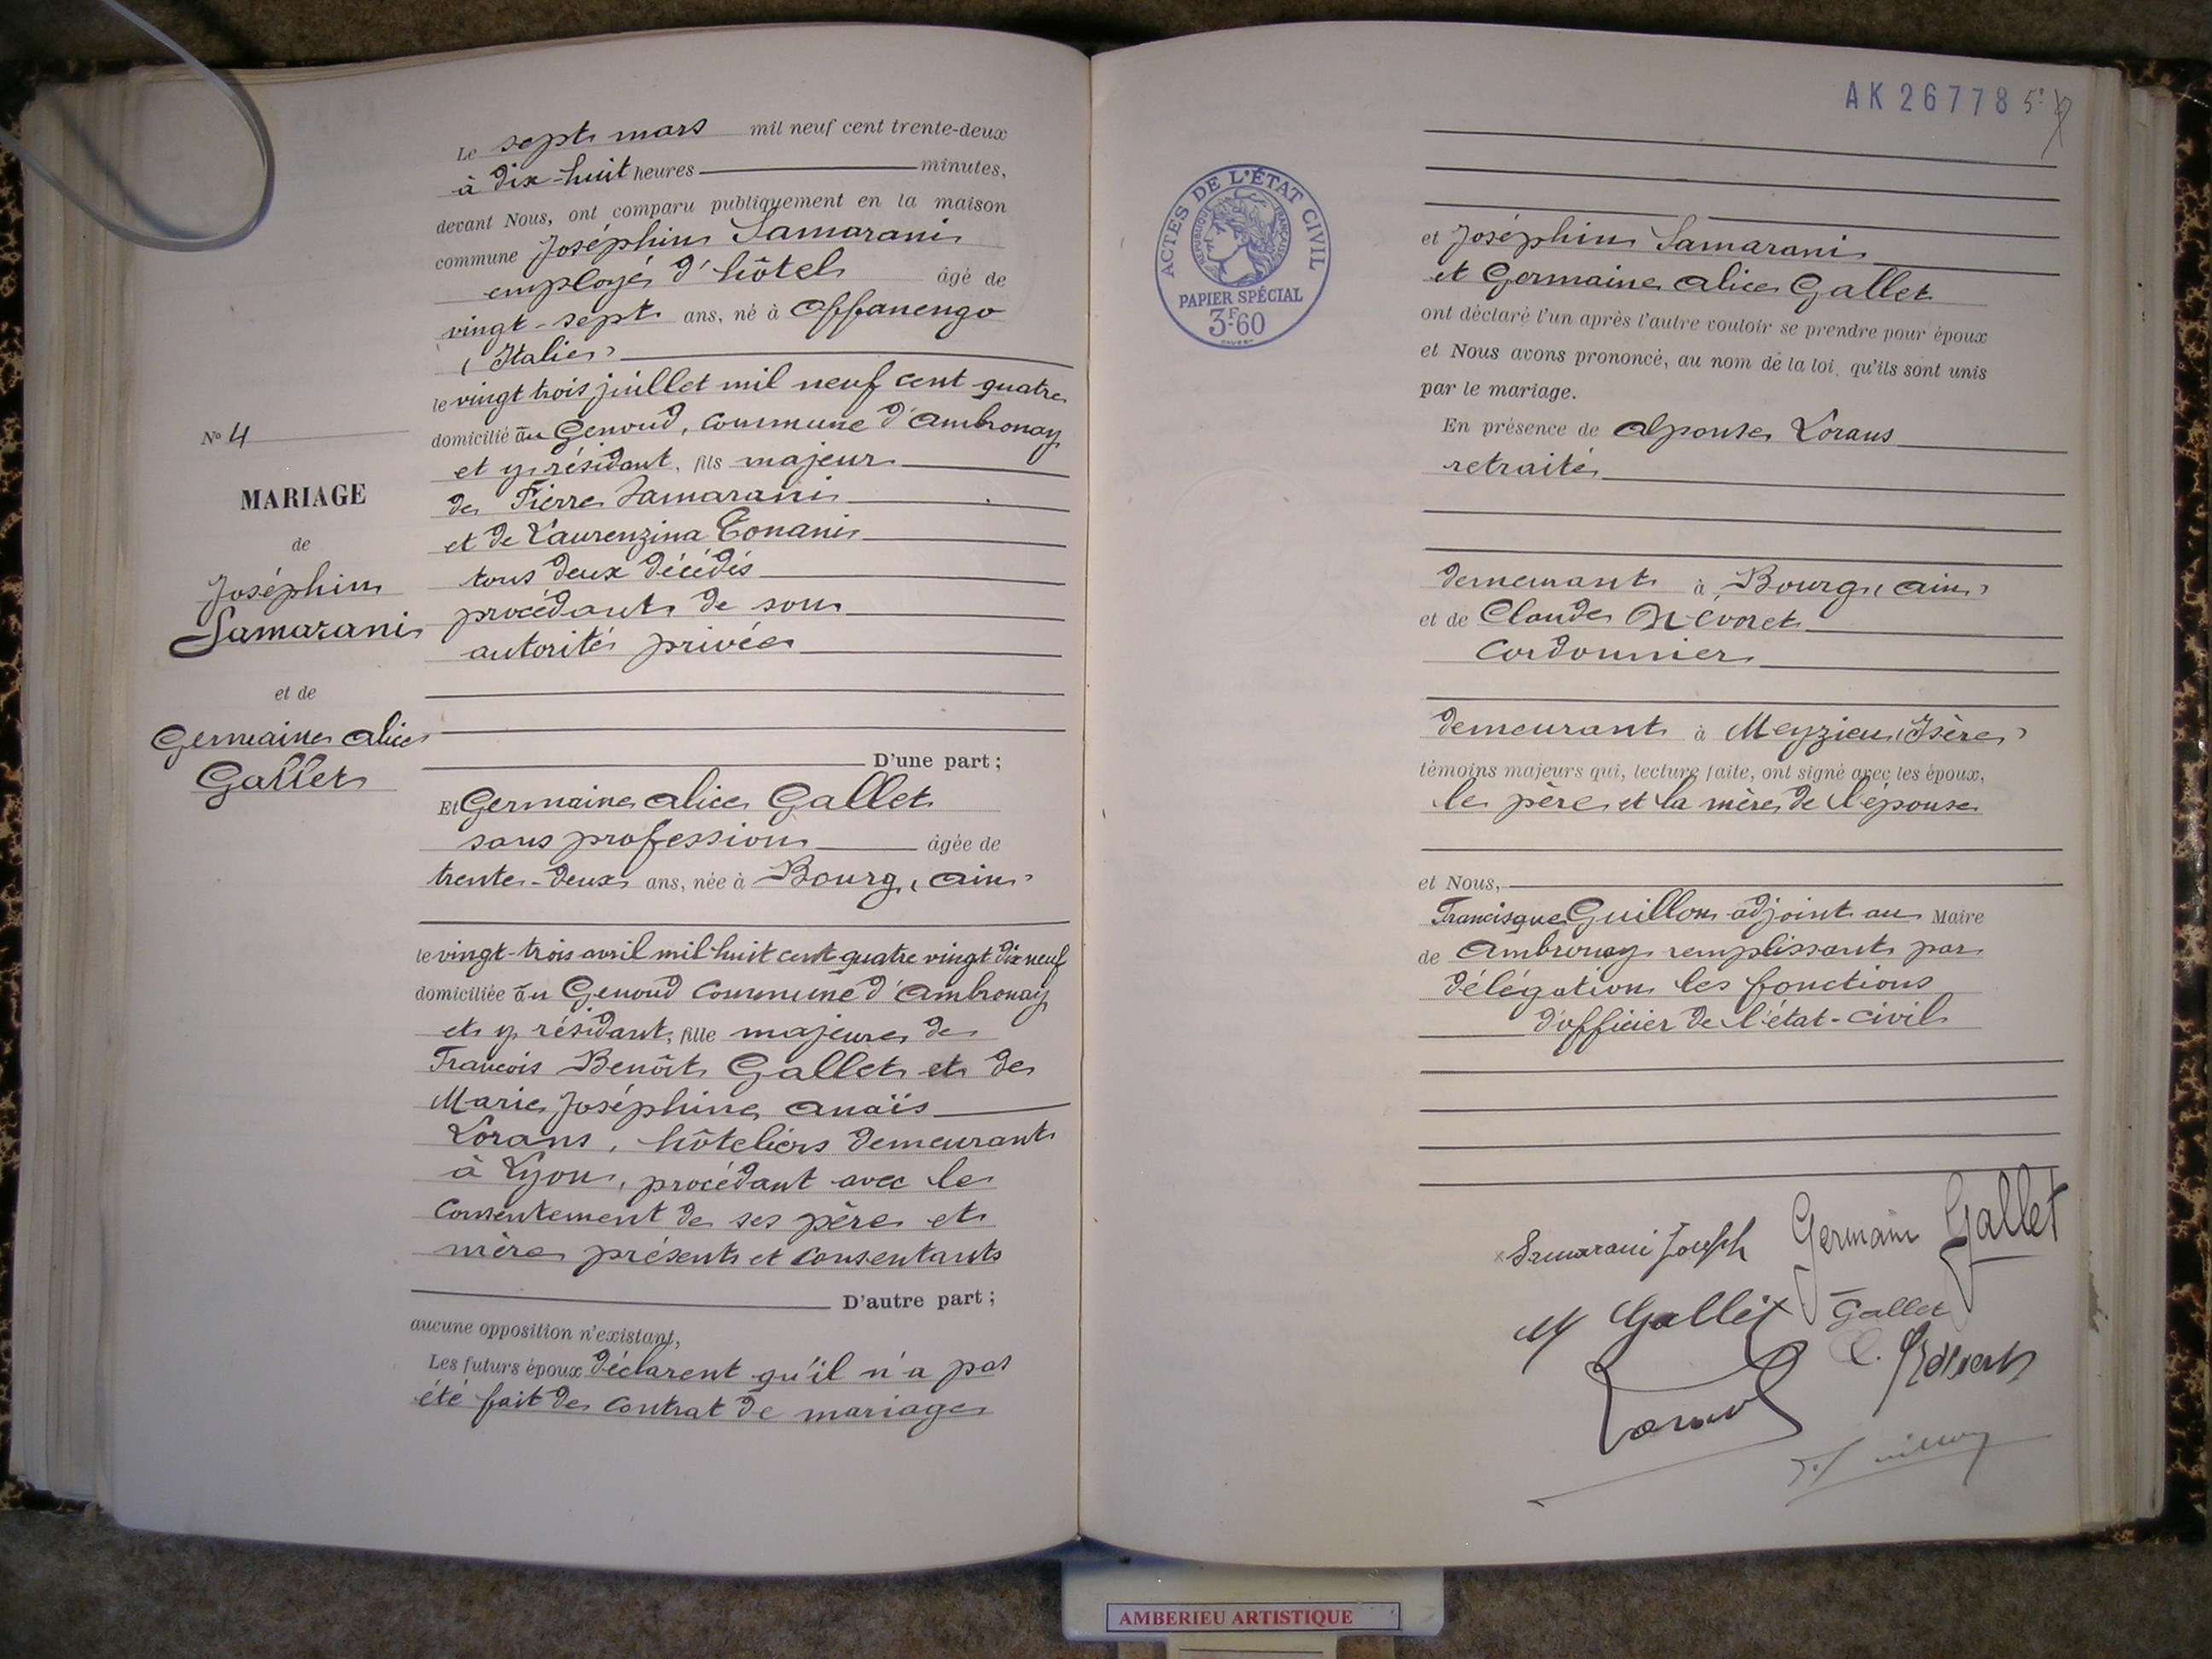 Le sept mars mil neuf cent trente-deux
à dix-huit heures minutes,
devant Nous, ont comparu publiquement en la maison
commune Joséphin Samarani
employé d'hôtel âgé de
vingt-sept ans, né à Offanengo
(Italie)
le vingt trois juillet mil neuf cent quatre
domicilié au Genoud, commune d'Ambronay
et y résidant, fils majeur
de Pierre Samarani
et de Laurenzina Tonani
tous deux décédés
procédant de son
autorité privée
D'une part ;
Et Germaine Alice Gallet
sans profession âgée de
trente-deux ans, née à Bourg (Ain)
le vingt-trois avril mil huit cent quatre vingt dix neuf
domiciliée au Genoud commune d'Ambronay
et y résidant, fille majeure de
François Benoît Gallet et de
Marie Joséphine Anaïs
Lorans, hôteliers demeurant
à Lyon, procédant avec le
consentement de ses père et
mère présents et consentants
D'autre part ;
aucune opposition n'existant,
Les futurs époux déclarent qu'il n'a pas
été fait de contrat de mariage
No 4
MARIAGE
de
Joséphin
Samarani
et de
Germaine Alice
Gallet
AK 26778
ACTES DE L'ÉTAT CIVIL
RÉPUBLIQUE FRANÇAISE
PAPIER SPÉCIAL
3F60
et Joséphin Samarani
et Germaine Alice Gallet
ont déclaré l'un après l'autre vouloir se prendre pour époux
et Nous avons prononcé, au nom de la loi, qu'ils sont unis
par le mariage.
En présence de Alponse Lorans
retraité
demeurant à Bourg (Ain)
et de Claude
Cordonnier
demeurant à Meyzieu (Isère)
témoins majeurs qui, lecture faite, ont signé avec les époux,
le père et la mère de l'épouse
et Nous,
Francisque Guillon adjoint au Maire
de Ambronay remplissant par
délégation les fonctions
d'officier de l'état-civil
Samarani Joseph Germain Gallet
M Gallet Gallet
AMBERIEU ARTISTIQUE